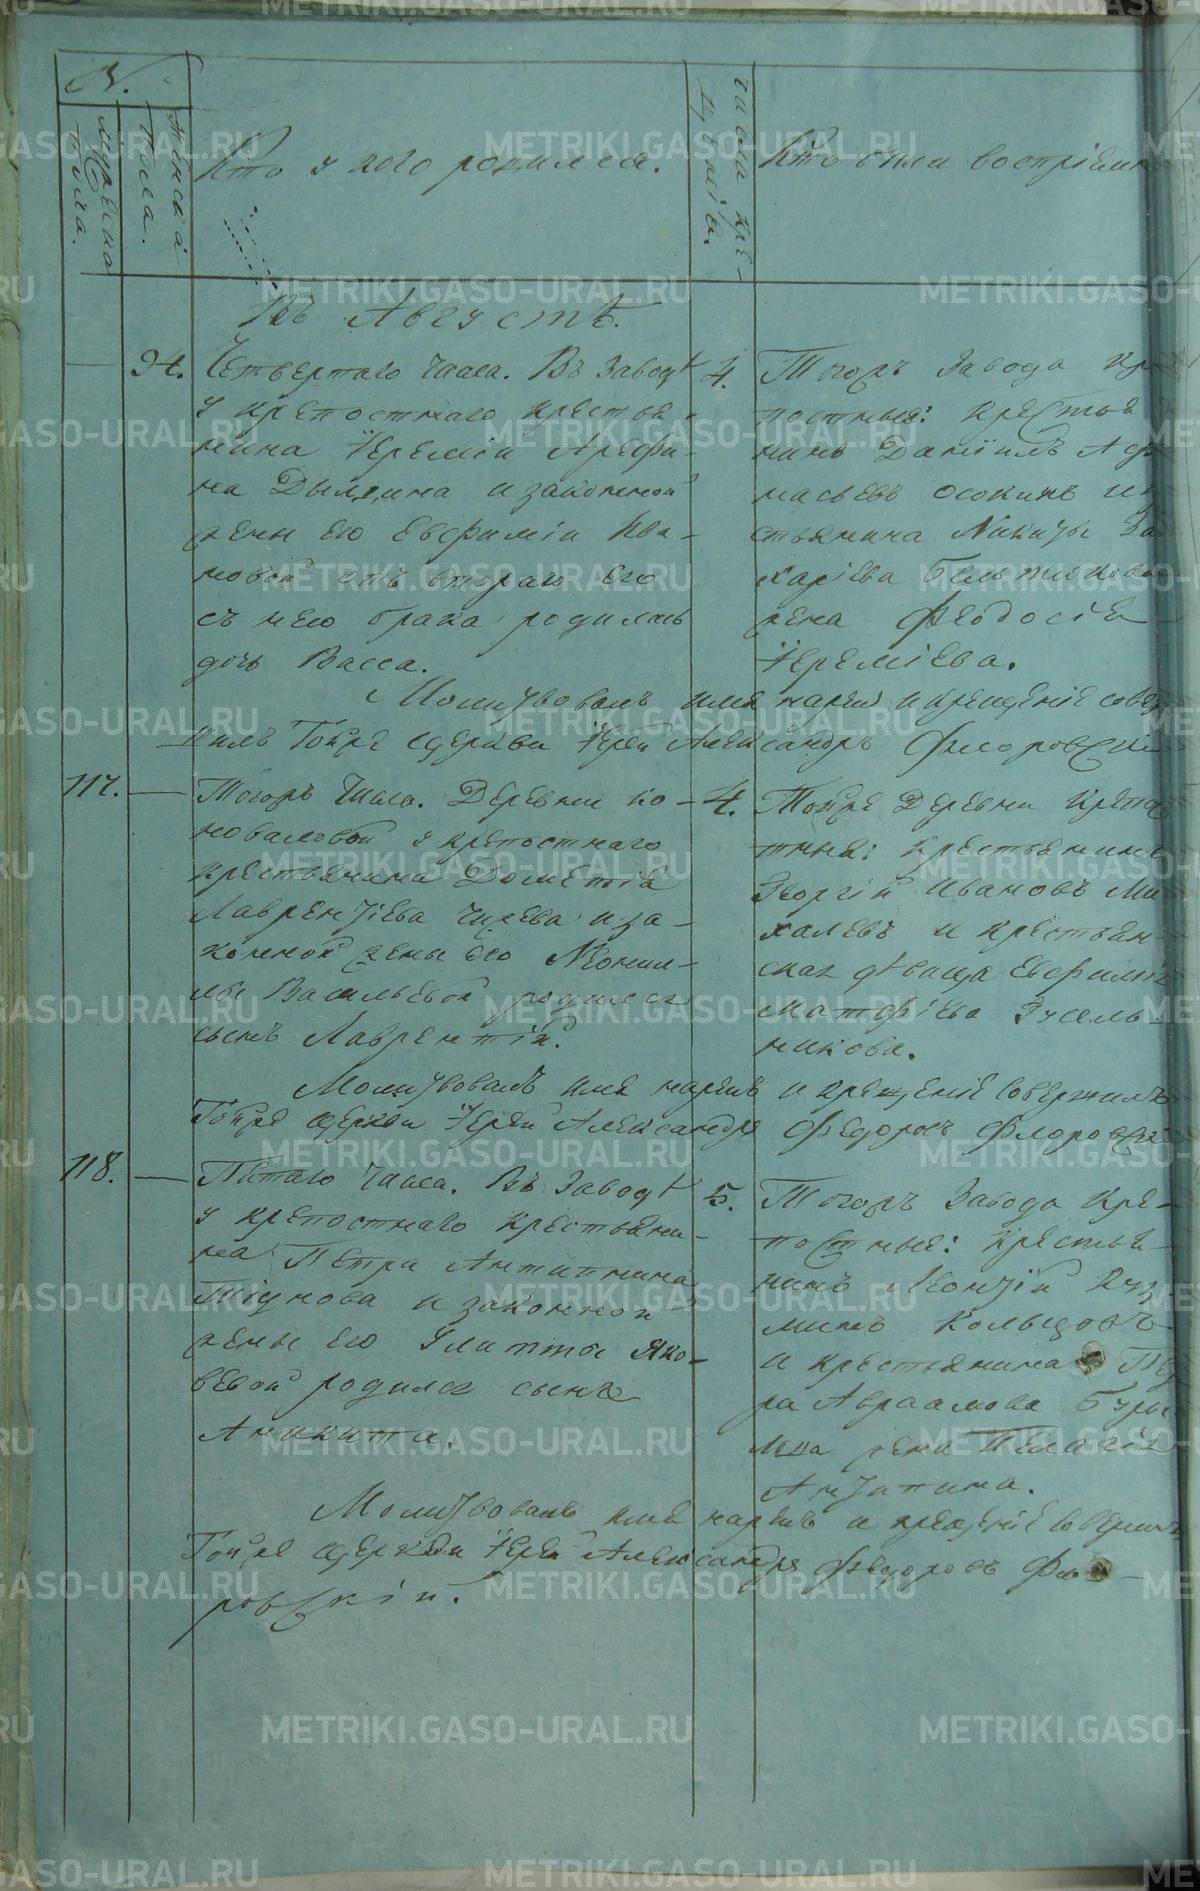 METRIKI.GASO-URAL.RU
N.
мужеска пола.
женска пола.
Кто у кого родился.
числа кре-
щенія.
Кто были воспріемн
Въ Августѣ.
94. Четвертаго числа. Въ заводѣ
у крепостнаго крестья-
нина Іереміи Арефи-
на Дылдина и законной
жены его Евфиміи Ива-
новой отъ втораго его
съ нею брака родилась
дочь Васса.
4. Тогожъ завода кре
постныя: крестья
нинъ Даніилъ Афа
насьевъ Осокинъ и кре
стьянина Никиты За
харіева Бельтюкова
жена Феодосія
Іереміева.
Молитвовалъ имя нарекъ и крещеніе совер
шилъ Тойже церкви Іерей Александръ Флоровскій
117. Тогожъ числа. Деревни Ко-
новаловой у крепостнаго
крестьянина Дометія
Лаврентіева Чижева и за-
конной жены его Неонил-
лы Васильевой родился
сынъ Лаврентій.
4. Тойже деревни крепос
тныя: крестьянинъ
Георгій Ивановъ Ми
халевъ и крестьян-
ская дѣвица Евфимія
Матфіева Гусель-
никова.
Молитвовалъ имя нарекъ и крещеніе совершилъ
Тойже церкви Іерей Александръ Федоровъ Флоровскій
118. Пятаго числа. Въ заводѣ
у крепостнаго крестьяни-
на Петра Антипина
Тіунова и законной
жены его Улитты Яко-
влевой родился сынъ
Аникита.
5. Тогожъ завода кре-
постныя: крестья
нинъ Леонтій Куз
минъ Кольцовъ
и крестьянина Пет
ра Авраамова Буры
лова жена Пелагія
Антипина.
Молитвовалъ имя нарекъ и крещеніе совершилъ
Тойже церкви Іерей Александръ Федоровъ Фло-
ровскій.